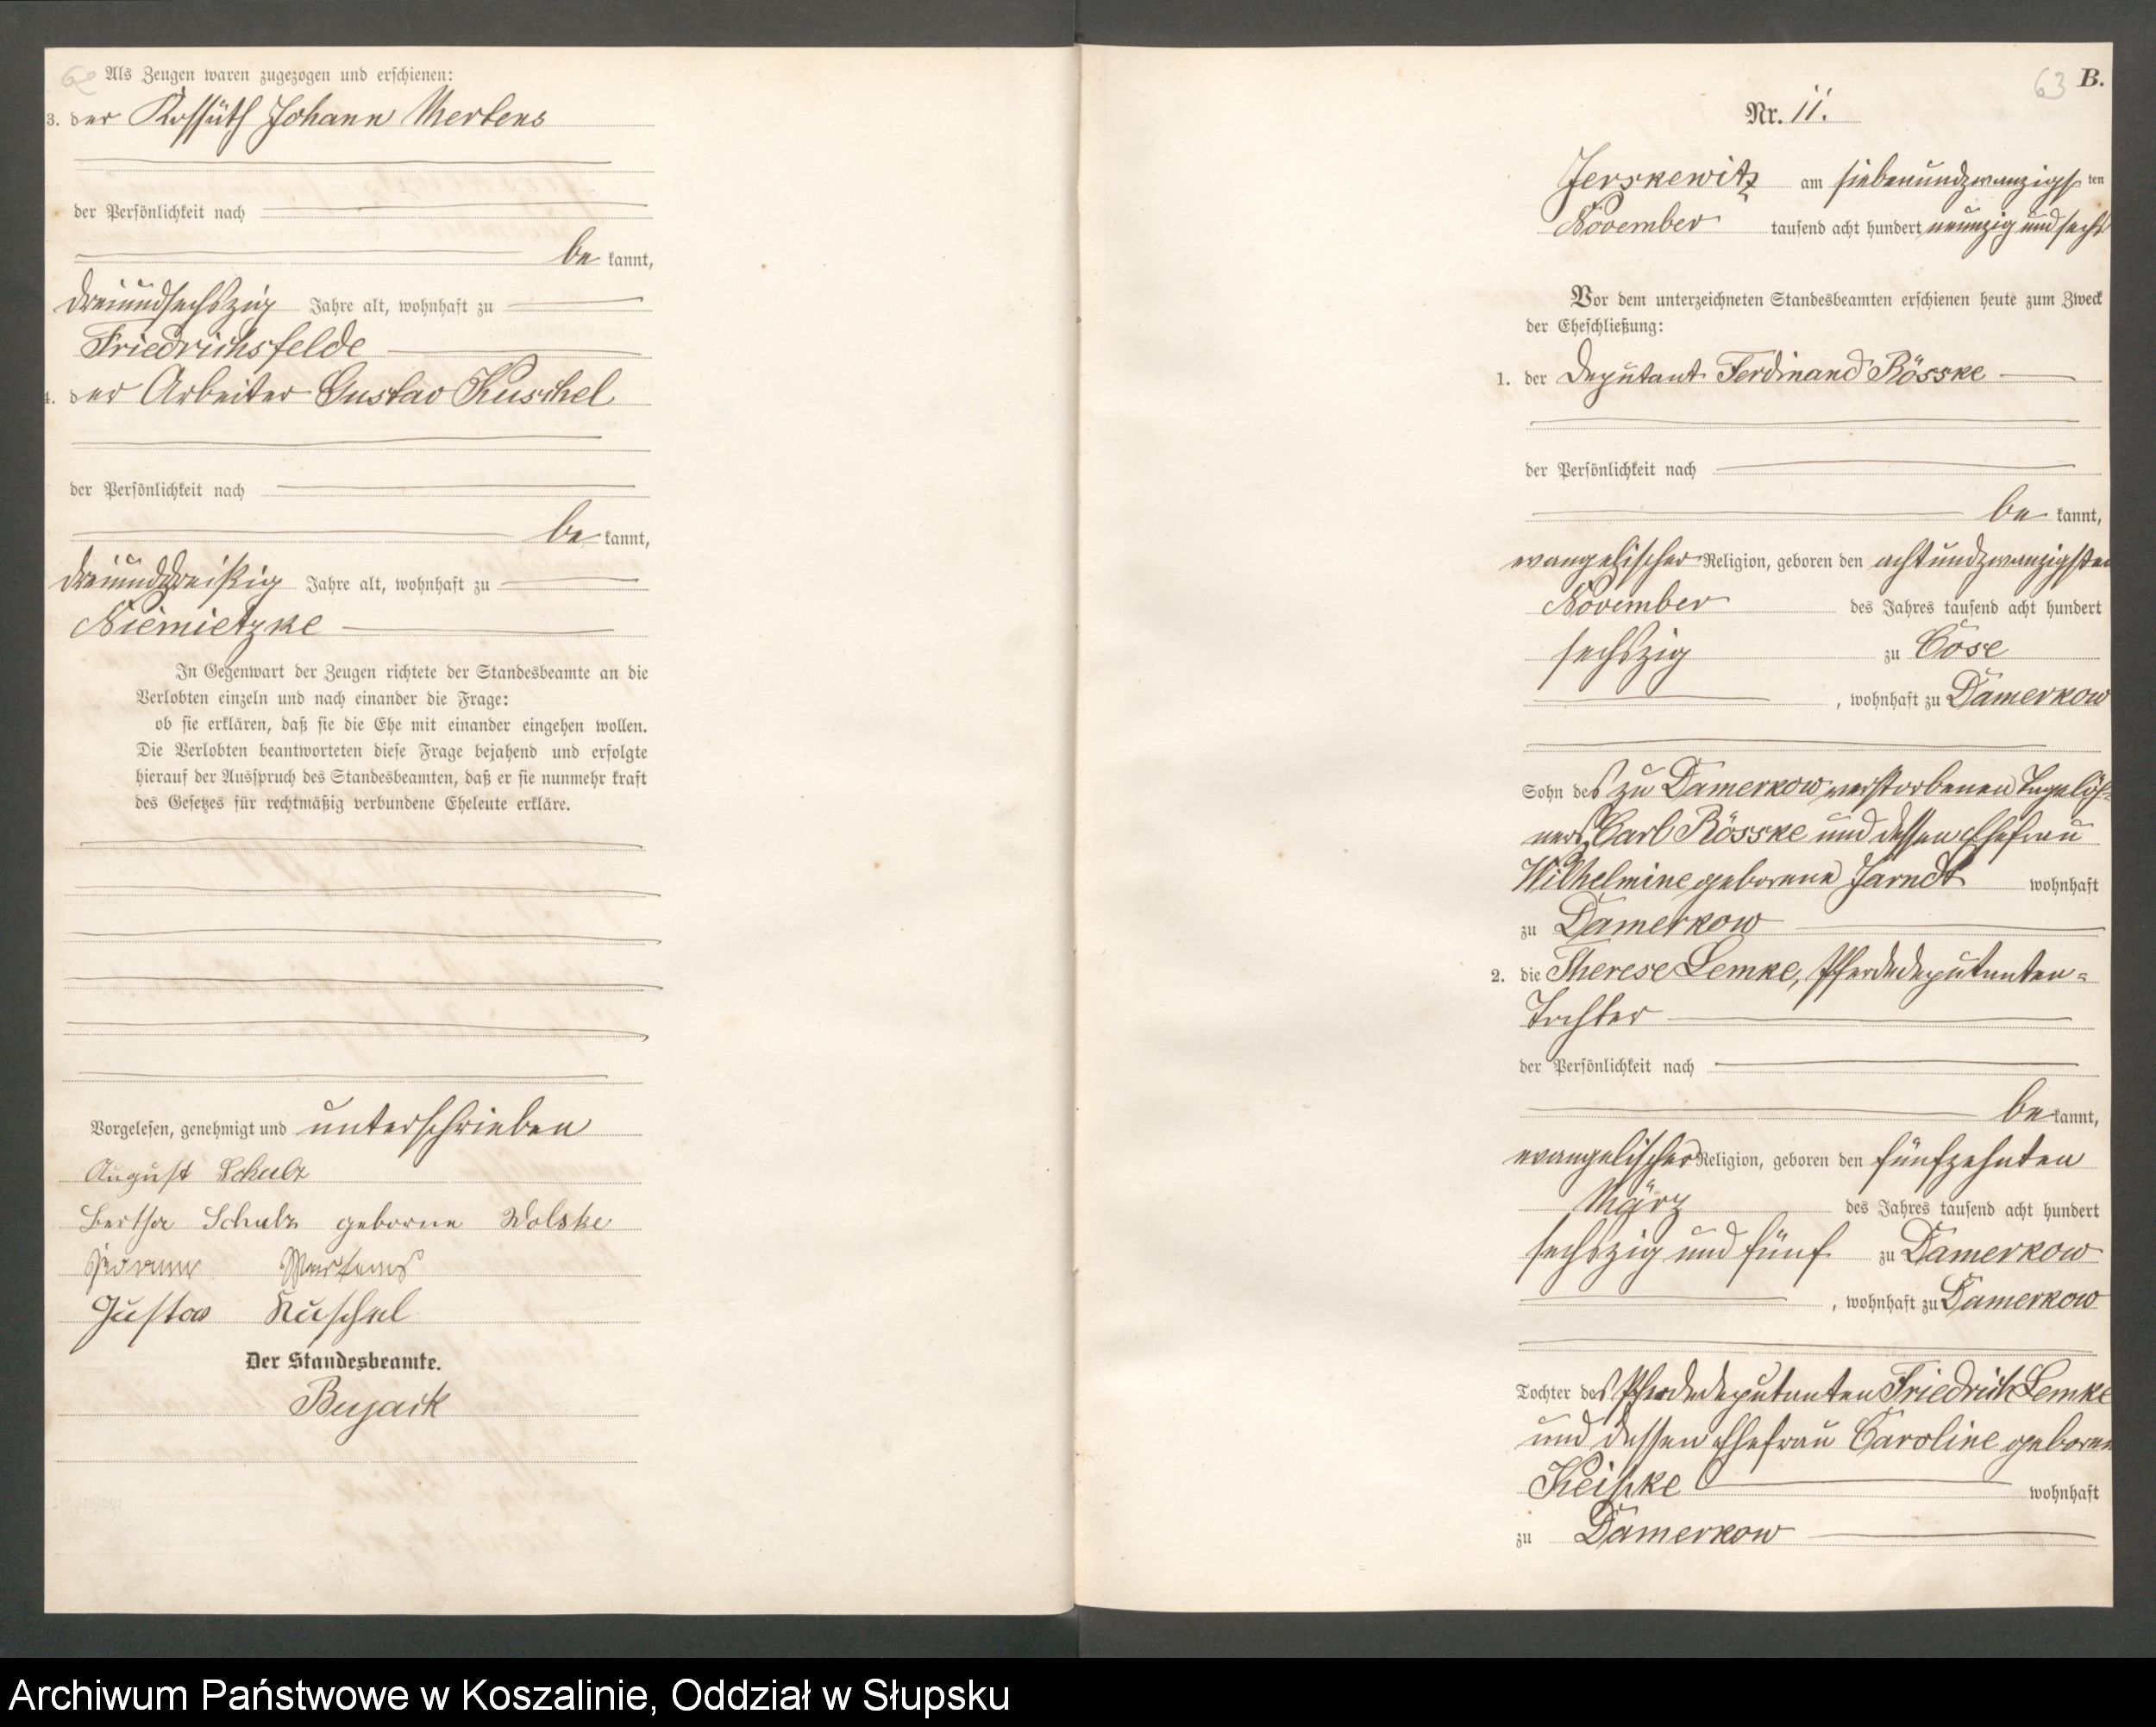 Als Zeugen waren zugezogen und erschienen:
3. der Kossäth Johann Mertens
der Persönlichkeit nach
be kannt,
dreiundsechszig Jahre alt, wohnhaft zu
Friedrichsfelde
4. der Arbeiter Gustav Kuschel
der Persönlichkeit nach
be kannt,
dreiunddreißig Jahre alt, wohnhaft zu
Niemietzke
In Gegenwart der Zeugen richtete der Standesbeamte an die
Verlobten einzeln und nach einander die Frage:
ob sie erklären, daß sie die Ehe mit einander eingehen wollen.
Die Verlobten beantworteten diese Frage bejahend und erfolgte
hierauf der Ausspruch des Standesbeamten, daß er sie nunmehr kraft
des Gesetzes für rechtmäßig verbundene Eheleute erkläre.
Vorgelesen, genehmigt und unterschrieben
August Schulz
Bertha Schulz geborne Wolske
Johann Mertens
Gustav Kuschel
Der Standesbeamte.
Bujack
63 B.
Nr. 11.
Jerskewitz am siebenundzwanzigs ten
November tausend acht hundert neunzig und sechs
Vor dem unterzeichneten Standesbeamten erschienen heute zum Zweck
der Eheschließung:
1. der Deputant Ferdinand Rösske
der Persönlichkeit nach
be kannt,
evangelischer Religion, geboren den achtundzwanzigsten
November des Jahres tausend acht hundert
sechszig zu Cose
, wohnhaft zu Damerkow
Sohn des zu Damerkow verstorbenen Tagelöh-
ners Carl Rösske und dessen Ehefrau
Wilhelmine geborene Jarndt wohnhaft
zu Damerkow
2. die Therese Lemke, Pferdedeputanten=
Tochter
der Persönlichkeit nach
be kannt,
evangelischer Religion, geboren den fünfzehnten
März des Jahres tausend acht hundert
sechszig und fünf zu Damerkow
, wohnhaft zu Damerkow
Tochter des Pferdedeputanten Friedrich Lemke
und dessen Ehefrau Caroline geborene
Keipke wohnhaft
zu Damerkow
Archiwum Państwowe w Koszalinie, Oddział w Słupsku